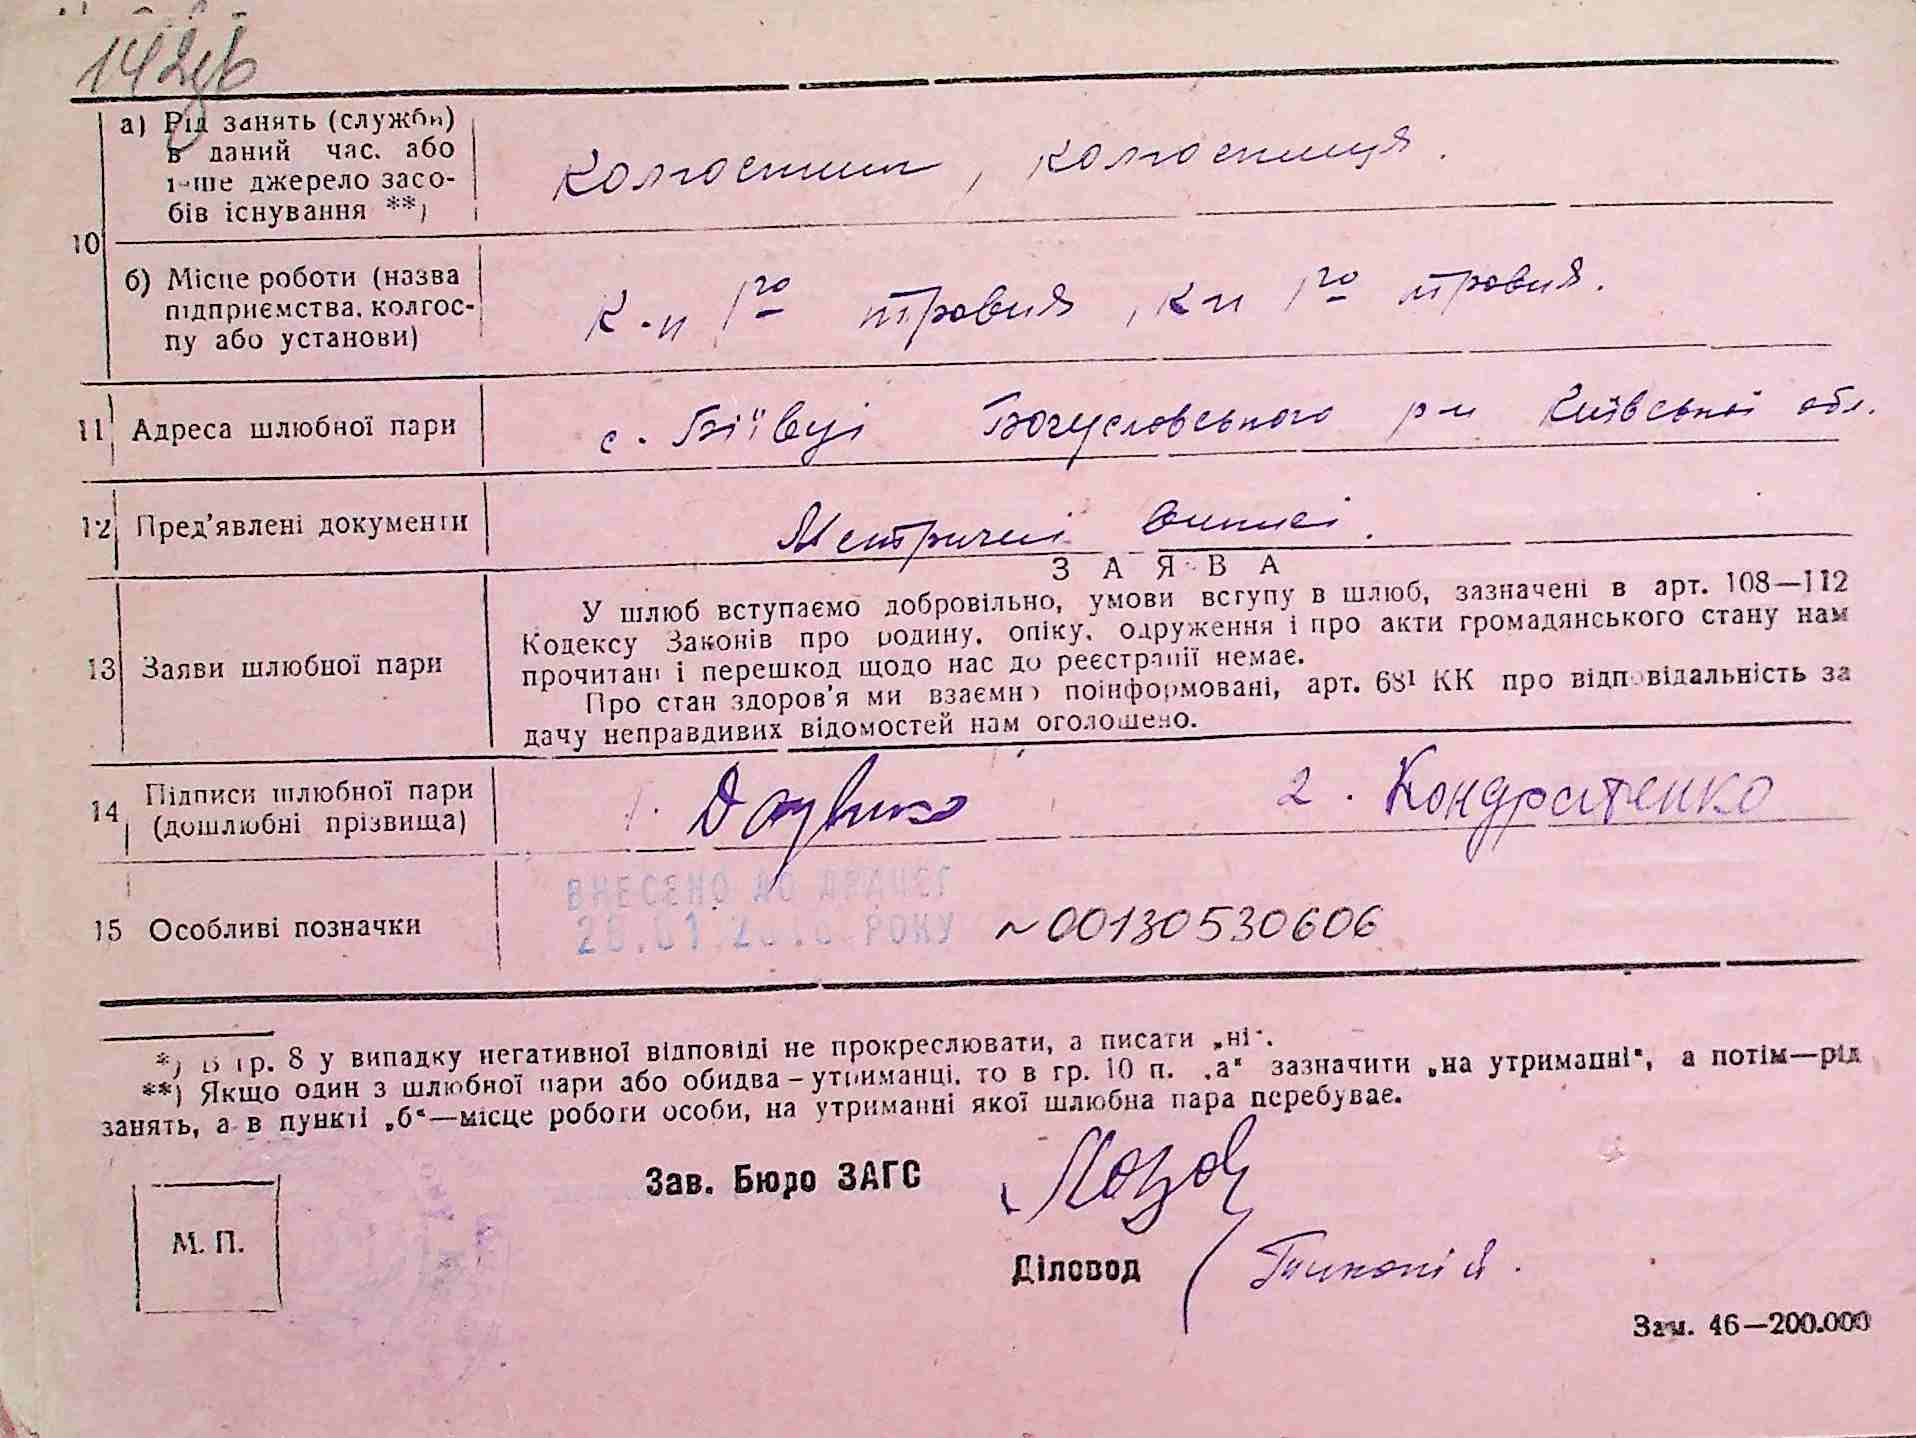 а) Рід занять (служби)
в даний час, або
інше джерело засо-
бів існування **)
колгоспник, колгоспниця.
10
б) Місце роботи (назва
підприємства, колгос-
пу або установи)
к-п 1го травня, к-п 1го травня.
11 Адреса шлюбної пари
с. Біївці Богуславського р-н Київської обл.
12 Пред'явлені документи
Метричні виписі.
ЗАЯВА
13 Заяви шлюбної пари
У шлюб вступаємо добровільно, умови вступу в шлюб, зазначені в арт. 108—112
Кодексу Законів про родину, опіку, одруження і про акти громадянського стану нам
прочитані і перешкод щодо нас до реєстрації немає.
Про стан здоров'я ми взаємно поінформовані, арт. 68¹ КК про відповідальність за
дачу неправдивих відомостей нам оголошено.
14 Підписи шлюбної пари
(дошлюбні прізвища)
1. 2. Кондратенко
15 Особливі позначки
ВНЕСЕНО ДО ДРАЦСГ
РОКУ
~00130530606
*) В гр. 8 у випадку негативної відповіді не прокреслювати, а писати „ні“.
**) Якщо один з шлюбної пари або обидва – утриманці, то в гр. 10 п. „а“ зазначити „на утриманні“, а потім—рід
занять, а в пункті „б“—місце роботи особи, на утриманні якої шлюбна пара перебуває.
Зав. Бюро ЗАГС
М. П.
Діловод
Зам. 46—200.000